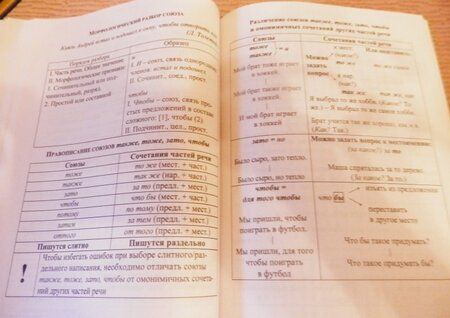 МОРФОЛОГИЧЕСКИЙ РАЗБОР СОЮЗА
Князь Андрей встал и подошел к окну, чтобы отворить его
(Л. Толстой)
Порядок разбора
Образец
I. Часть речи. Общее значение
II. Морфологические признаки:
1. Сочинительный или под-
чинительный, разряд.
2. Простой или составной
и
I. И – союз, связь однородных
членов встал и подошел.
II. Сочинит., соед., прост.
чтобы
I. Чтобы – союз, связь про-
стых предложений в составе
сложного: [1], чтобы (2).
II. Подчинит., цел., прост.
ПРАВОПИСАНИЕ СОЮЗОВ также, тоже, зато, чтобы
Союзы
Сочетания частей речи
тоже
то же (мест. + част.)
также
так же (нар. + част.)
зато
за то (предл. + мест.)
чтобы
что бы (мест. + част.)
потому
по тому (предл. + мест.)
затем
за тем (предл. + мест.)
оттого
от того (предл. + мест.)
Пишутся слитно
Пишутся раздельно
!
Чтобы избегать ошибок при выборе слитного/раз-
дельного написания, необходимо отличать союзы
также, тоже, зато, чтобы от омонимичных сочета-
ний других частей речи
РАЗЛИЧЕНИЕ СОЮЗОВ также, тоже, зато, чтобы
и омонимичных сочетаний других частей речи
Союзы
Сочетания частей речи
тоже
также
= и
Мой брат тоже играет
в хоккей.
Мой брат также играет
в хоккей.
И мой брат играет
в хоккей.
Можно
задать
вопрос
Я выбрал то же хобби. (Какое? То
же.) – Я выбрал то же самое хобби.
Брат учится так же хорошо, как и я.
(Как? Так.)
зато = но
Можно задать вопрос к местоимению:
(за какое?) за то
Было сыро, зато тепло.
Было сыро, но тепло
Маша спряталась за то дерево.
(За какое? За то.)
чтобы =
для того чтобы
что бы
изъять из предложения
переставить
в другое место
Мы пришли, чтобы
поиграть в футбол.
Мы пришли, для того
чтобы поиграть
в футбол
Что бы такое придумать?
Что такое придумать бы?